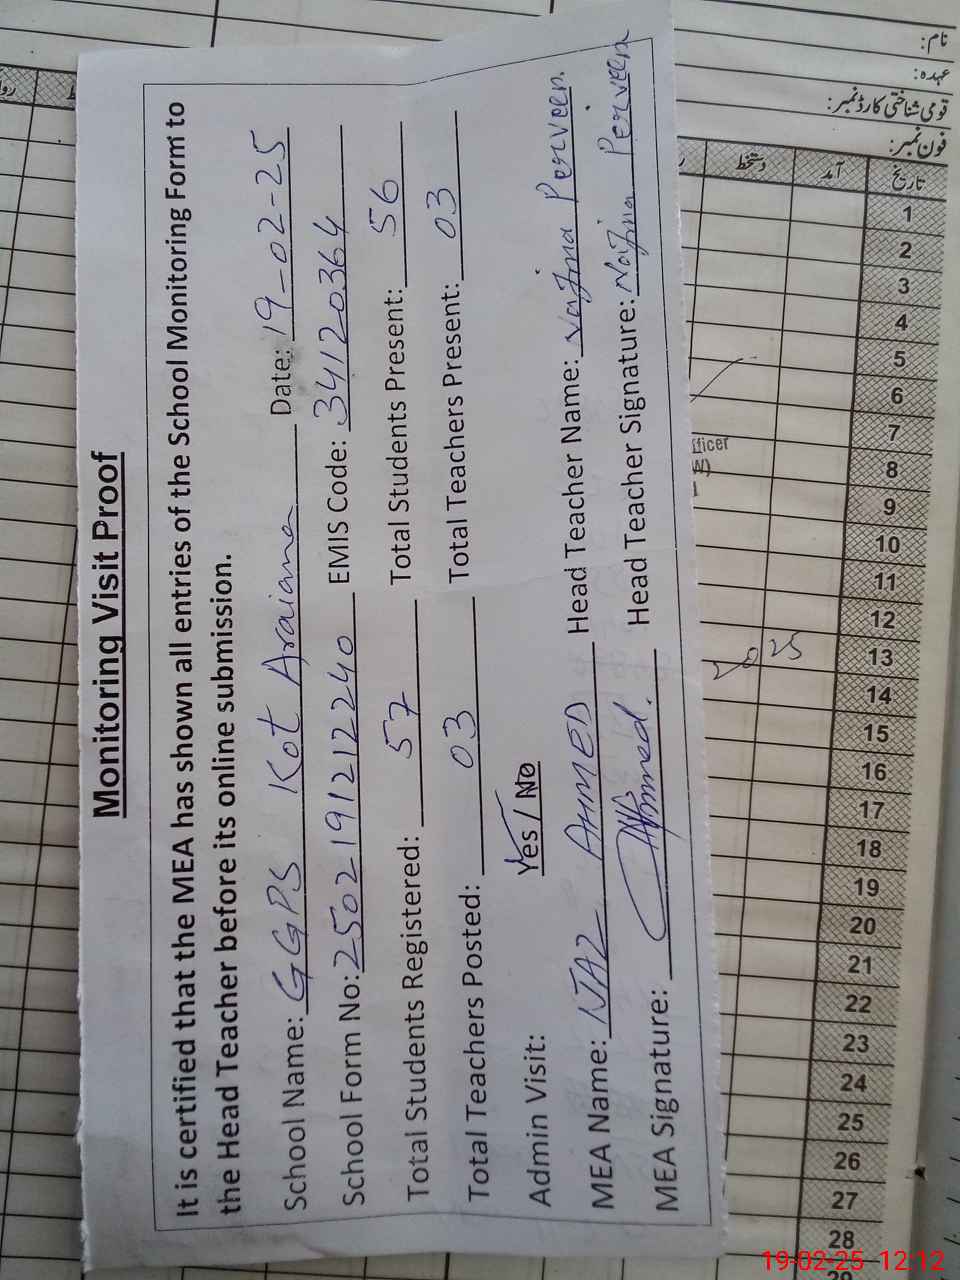 Monitoring Visit Proof
It is certified that the MEA has shown all entries of the School Monitoring Form to
the Head Teacher before its online submission.
School Name: GGPS Kot Araiana Date: 19-02-25
School Form No: 2502191212240 EMIS Code: 34120364
Total Students Registered: 57 Total Students Present: 56
Total Teachers Posted: 03 Total Teachers Present: 03
Admin Visit: Yes / No
MEA Name: NJAZ AHMED Head Teacher Name: Najma Perveen
MEA Signature: Ahmed. Head Teacher Signature: Najma Perveen
نام:
عہدہ:
قومی شناختی کارڈ نمبر:
فون نمبر:
تاریخ آمد دستخط
1
2
3
4
5
6
7
8
9
10
11
12
13
14
15
16
17
18
19
20
21
22
23
24
25
26
27
28
29
fficer
W)
2025
19-02-25 12:12